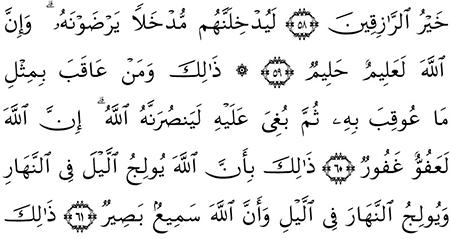 خَيْرُ ٱلرَّٰزِقِينَ ۝٥٨ لَيُدْخِلَنَّهُم مُّدْخَلًا يَرْضَوْنَهُۥ ۗ وَإِنَّ
ٱللَّهَ لَعَلِيمٌ حَلِيمٌ ۝٥٩ ۞ ذَٰلِكَ وَمَنْ عَاقَبَ بِمِثْلِ
مَا عُوقِبَ بِهِۦ ثُمَّ بُغِىَ عَلَيْهِ لَيَنصُرَنَّهُ ٱللَّهُ ۗ إِنَّ ٱللَّهَ
لَعَفُوٌّ غَفُورٌ ۝٦٠ ذَٰلِكَ بِأَنَّ ٱللَّهَ يُولِجُ ٱلَّيْلَ فِى ٱلنَّهَارِ
وَيُولِجُ ٱلنَّهَارَ فِى ٱلَّيْلِ وَأَنَّ ٱللَّهَ سَمِيعٌۢ بَصِيرٌ ۝٦١ ذَٰلِكَ